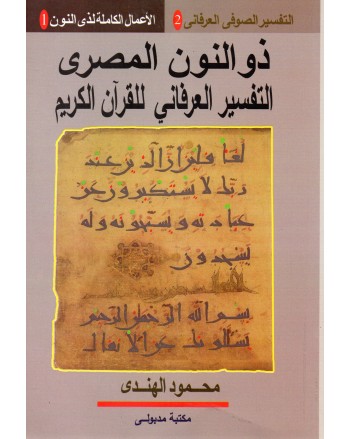 التفسير الصوفى العرفانى 2
الأعمال الكاملة لذى النون 1
ذو النون المصرى
التفسير العرفاني للقرآن الكريم
ربك لا يستكبرون عن
عبادته ويسبحونه وله
يسجدون
بسم الله الرحمن الرحيم
محمود الهندى
مكتبة مدبولى